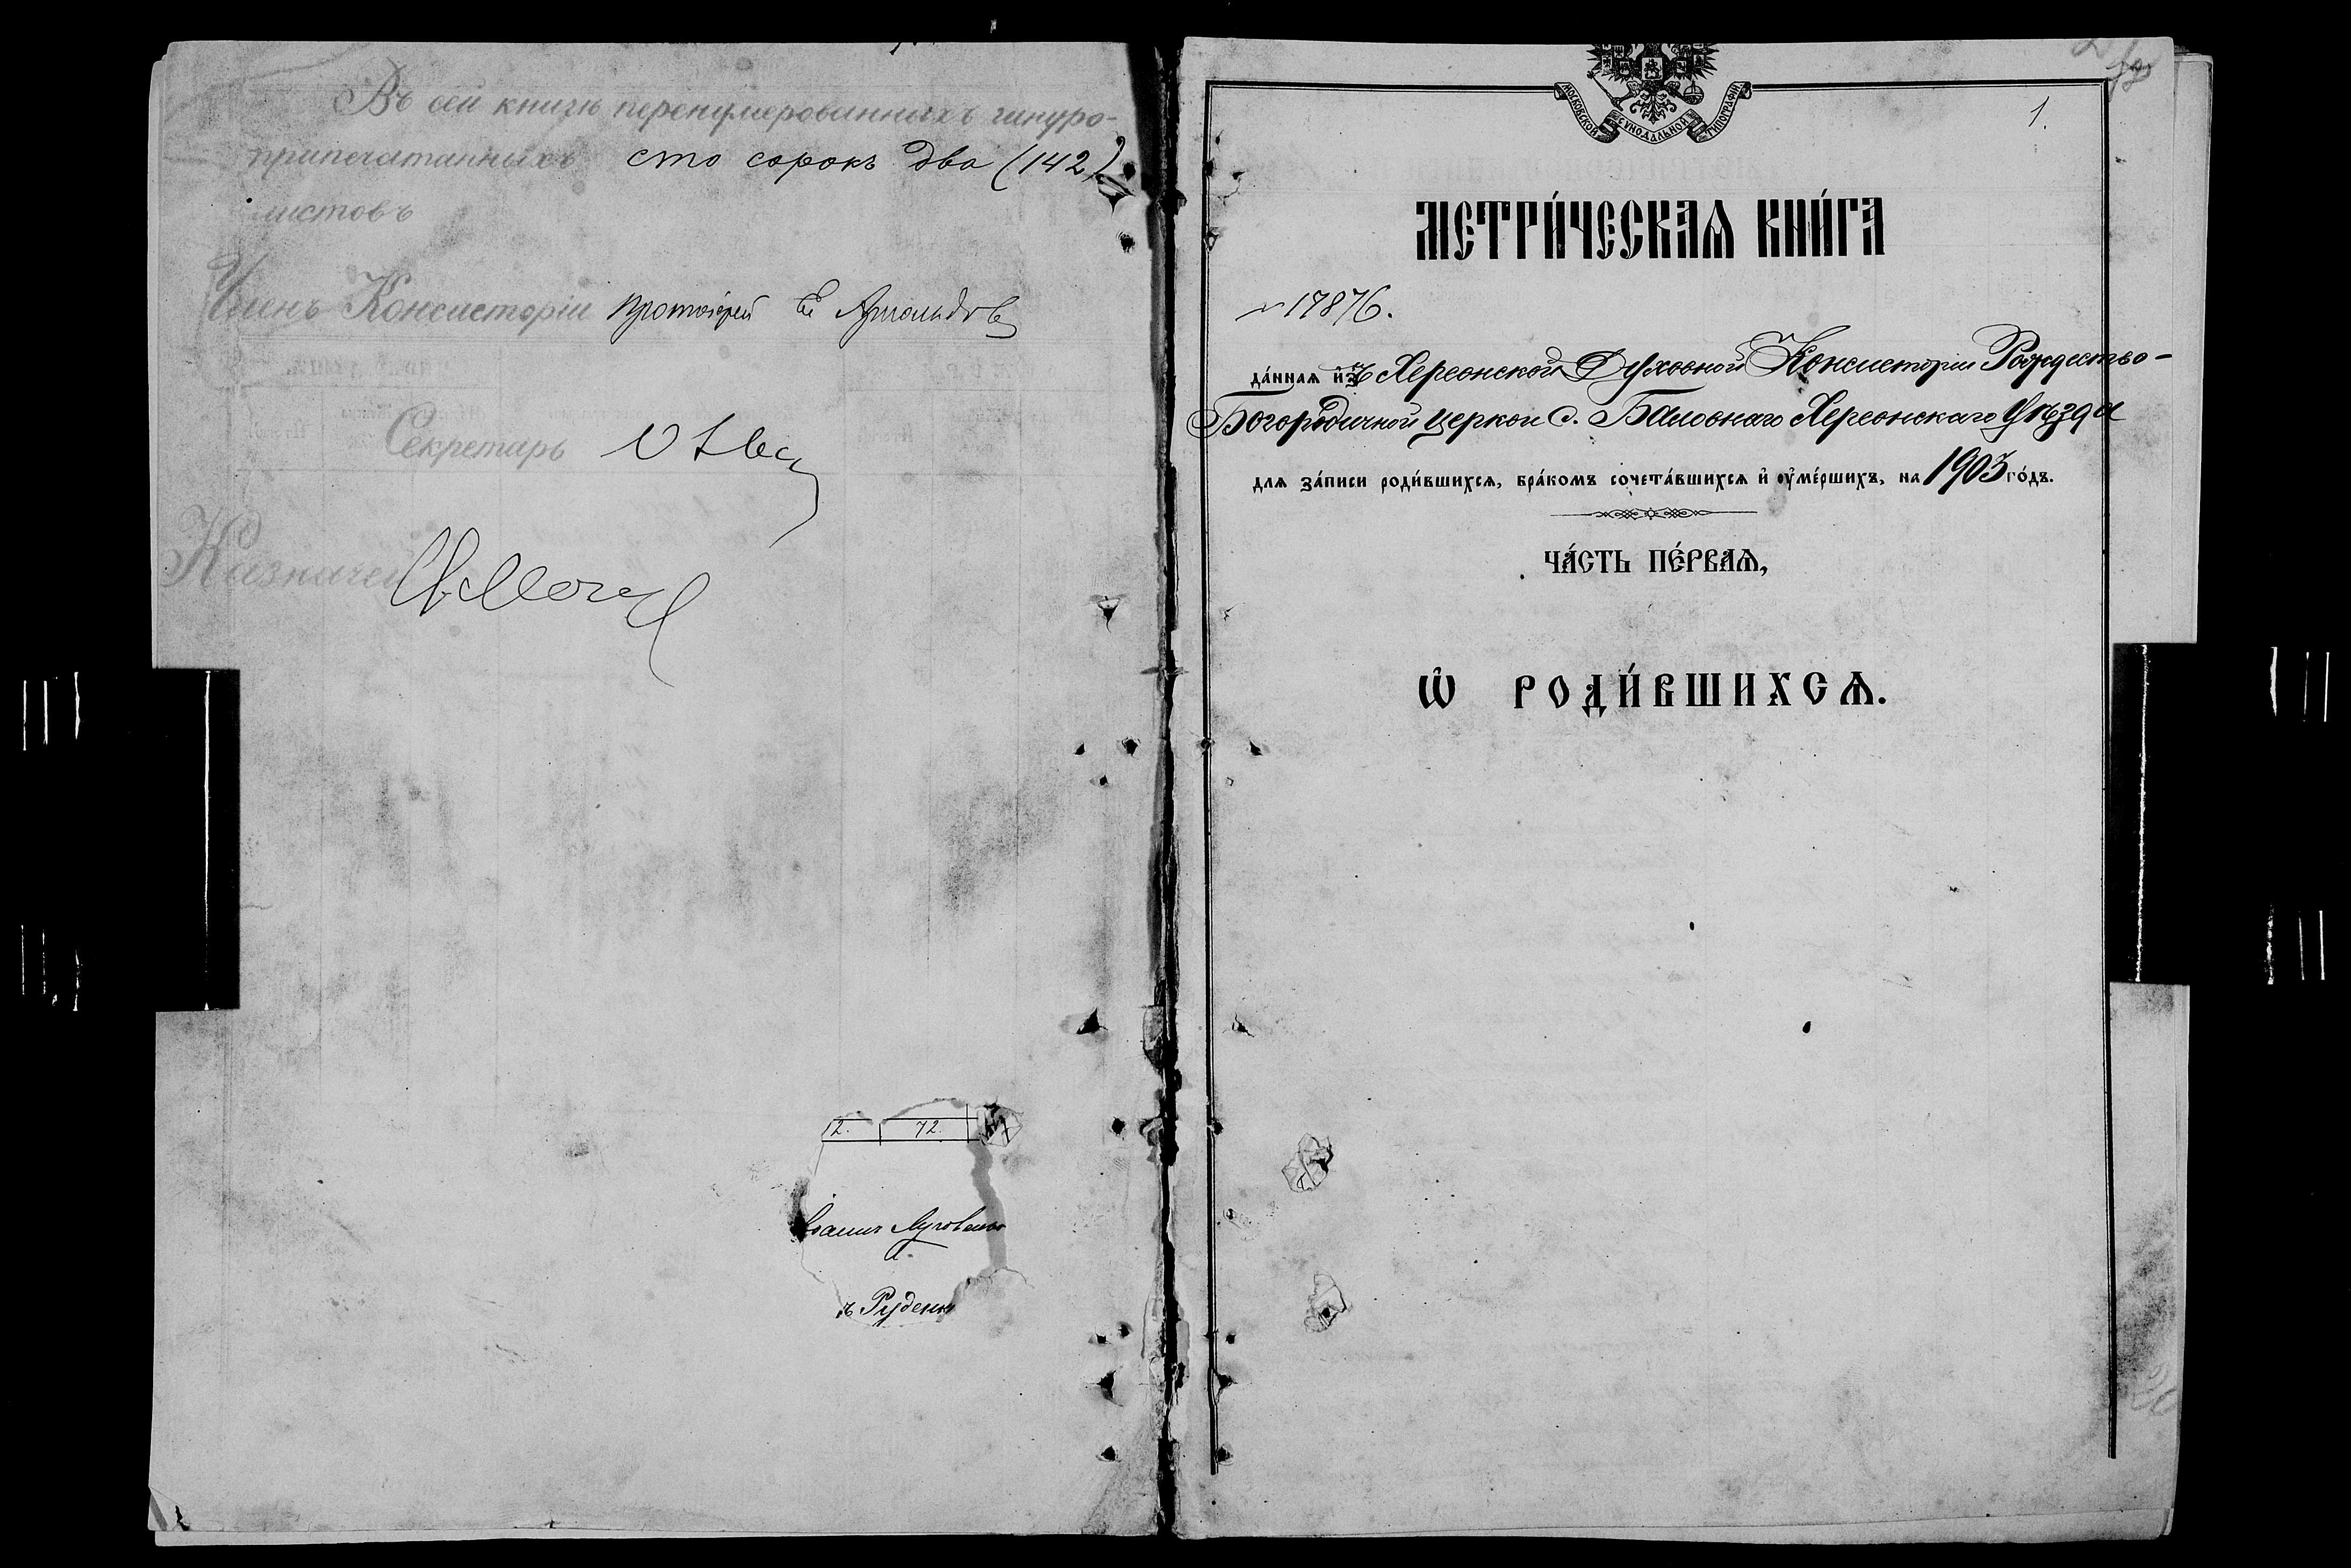 Въ сей книгѣ перенумерованныхъ шнуро-
припечатанныхъ сто сорокъ два (142)
листовъ
Членъ Консисторіи Протоіерей
Секретарь
Казначей
12. 72.
ъ Руденк
1.
МОСКОВСКОЙ СѴНОДАЛЬНОЙ ТИПОГРАФІИ
МЕТРИ́ЧЕСКАѦ КНИ́ГА
№ 17876.
да́ннаѧ и҆зъ Херсонской Духовной Консисторіи Рождество-
Богородичной церкви с. Баловнаго Херсонскаго Уѣзда
длѧ за́писи роди́вшихсѧ, бра́комъ сочета́вшихсѧ и҆ ᲂу҆ме́ршихъ, на 1903 го́дъ.
ЧА́СТЬ ПЕ́РВАѦ,
Ѡ҆ РОДИ́ВШИХСѦ.